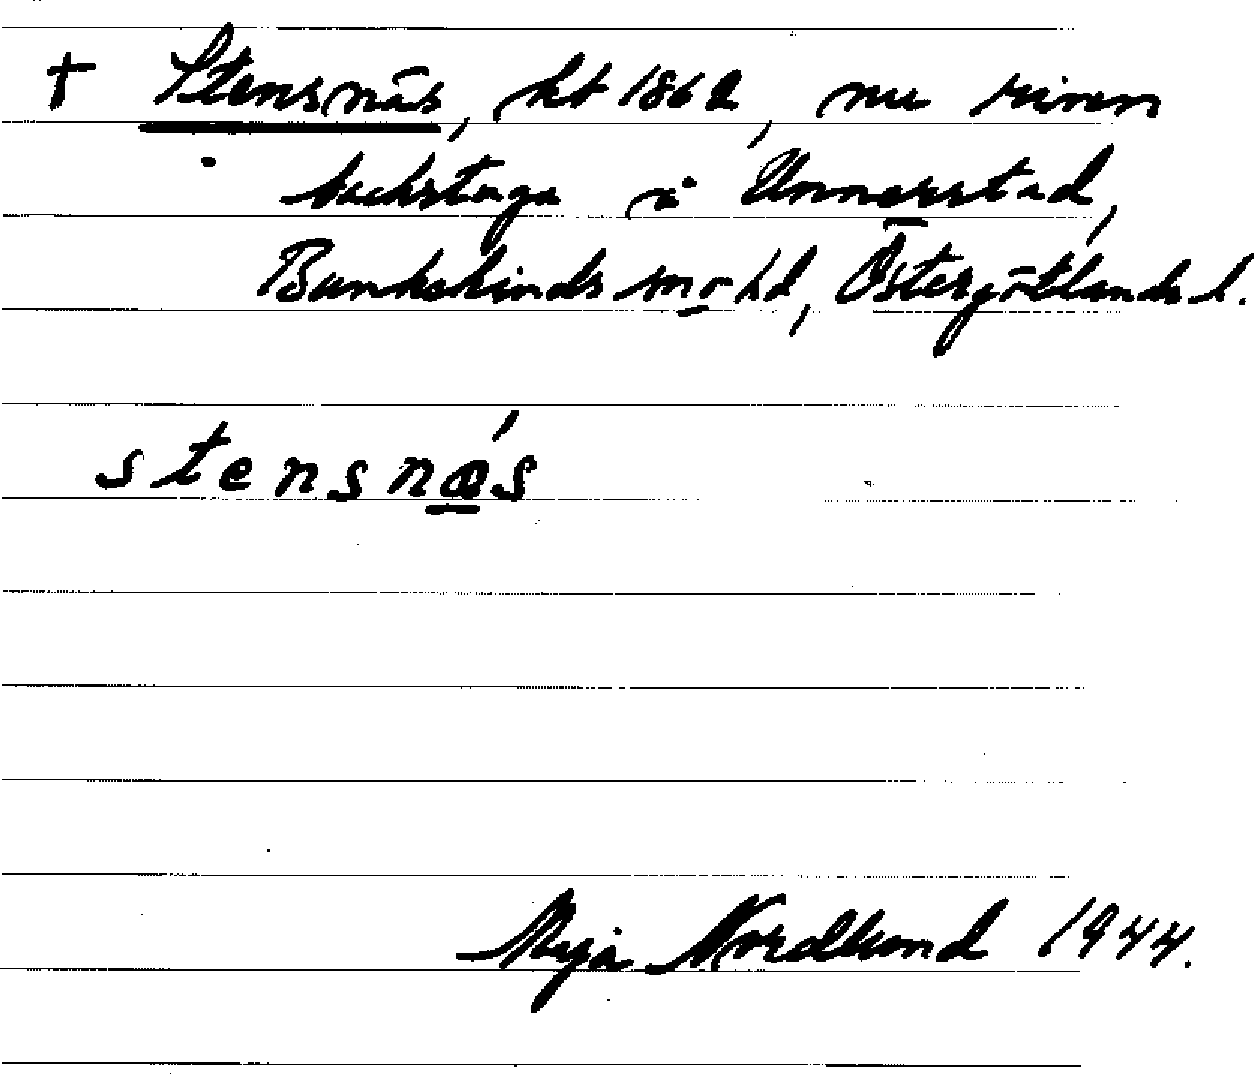 † Stensnäs, ht 1862, nu riven
backstuga i Unnerstad,
Bankekinds sn o hd, Östergötlands l.
stensnǽs
Nordlund 1944.